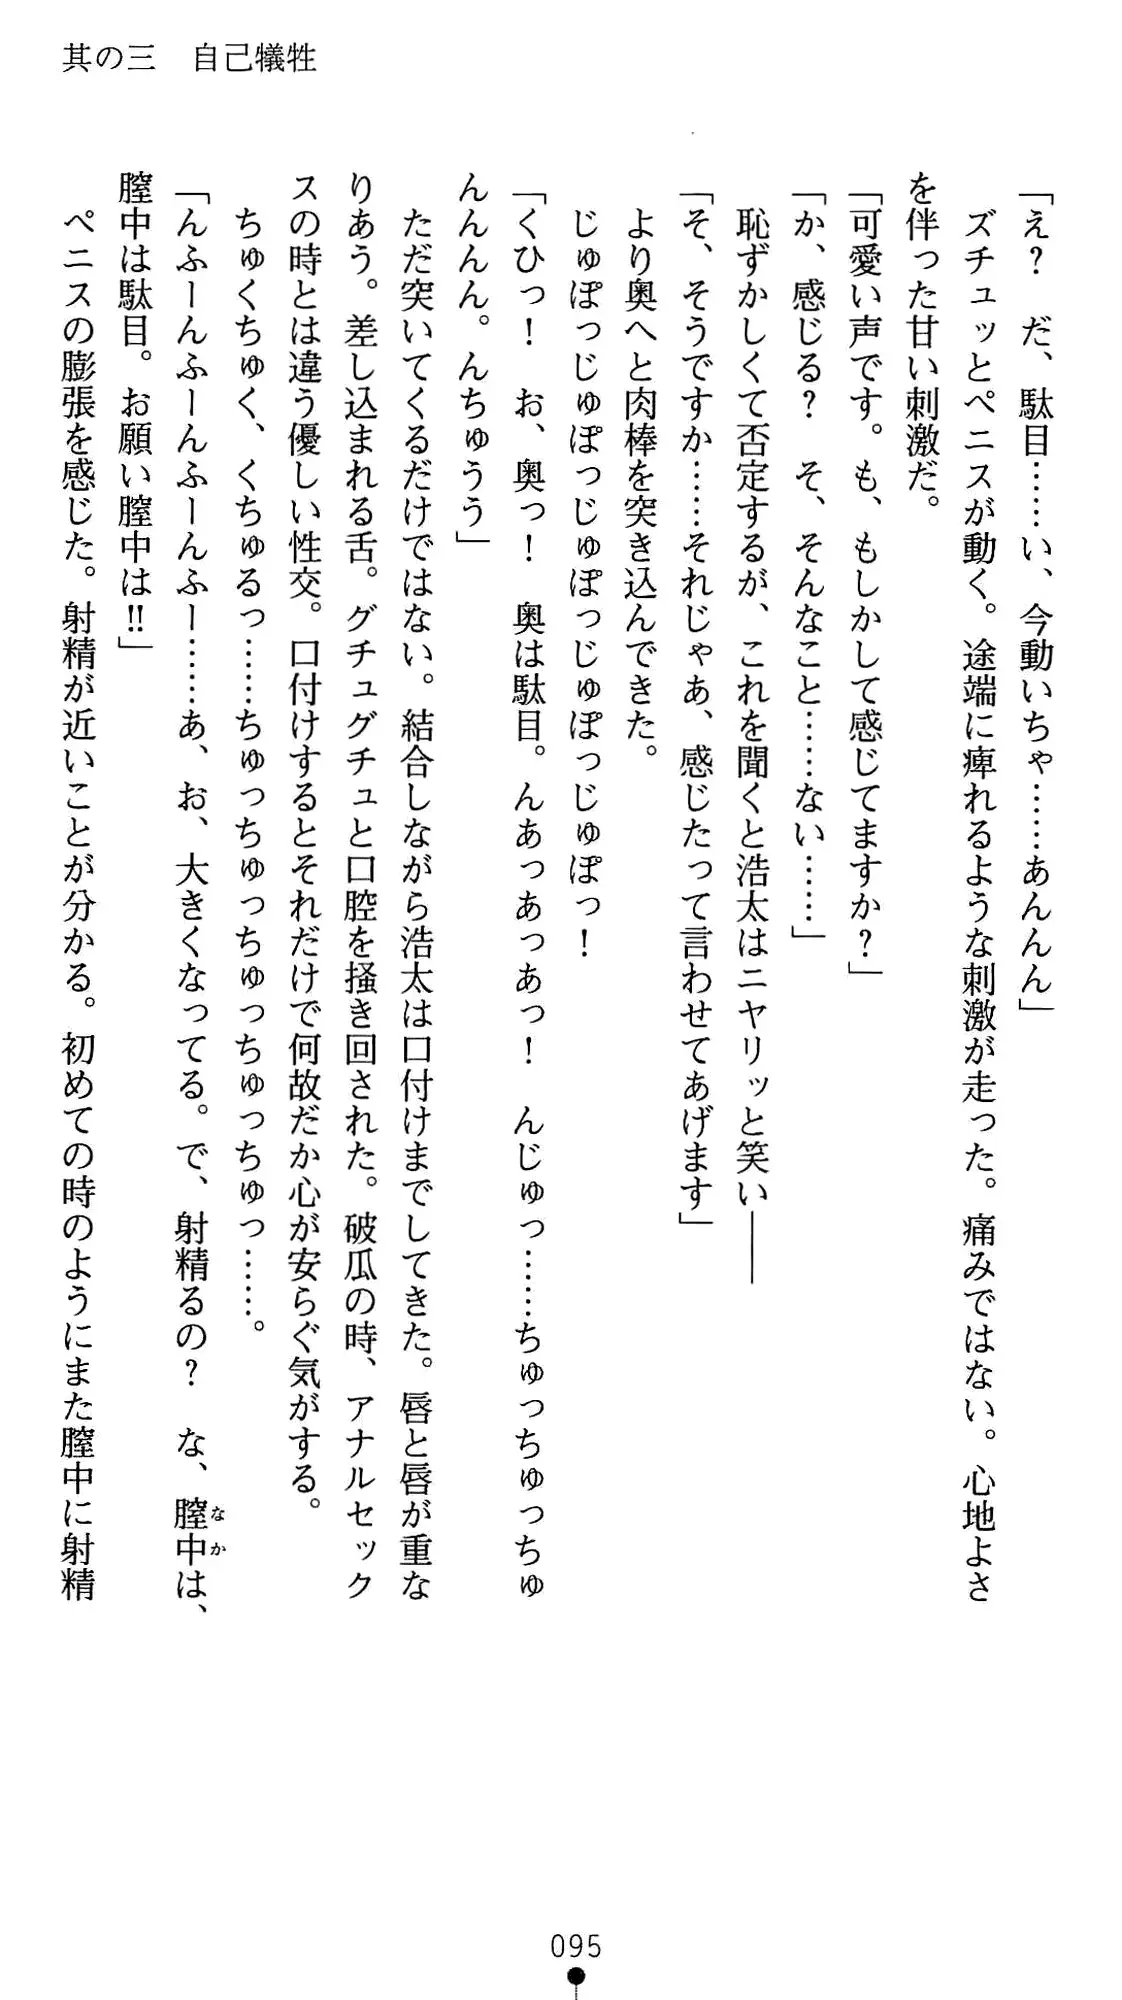 其の三　自己犠牲
「え？　だ、駄目……い、今動いちゃ……あんんん」
　ズチュッとペニスが動く。途端に痺れるような刺激が走った。痛みではない。心地よさ
を伴った甘い刺激だ。
「可愛い声です。も、もしかして感じてますか？」
「か、感じる？　そ、そんなこと……ない……」
　恥ずかしくて否定するが、これを聞くと浩太はニヤリッと笑い――
「そ、そうですか……それじゃあ、感じたって言わせてあげます」
　より奥へと肉棒を突き込んできた。
　じゅぽっじゅぽっじゅぽっじゅぽっじゅぽっ！
「くひっ！　お、奥っ！　奥は駄目。んあっあっあっ！　んじゅっ……ちゅっちゅっちゅ
んんんん。んちゅうう」
　ただ突いてくるだけではない。結合しながら浩太は口付けまでしてきた。唇と唇が重な
りあう。差し込まれる舌。グチュグチュと口腔を掻き回された。破瓜の時、アナルセック
スの時とは違う優しい性交。口付けするとそれだけで何故だか心が安らぐ気がする。
　ちゅくちゅく、くちゅるっ……ちゅっちゅっちゅっちゅっちゅっ……。
「んふーんふーんふーんふー……あ、お、大きくなってる。で、射精るの？　な、膣中は、
なか
膣中は駄目。お願い膣中は!!」
　ペニスの膨張を感じた。射精が近いことが分かる。初めての時のようにまた膣中に射精
095